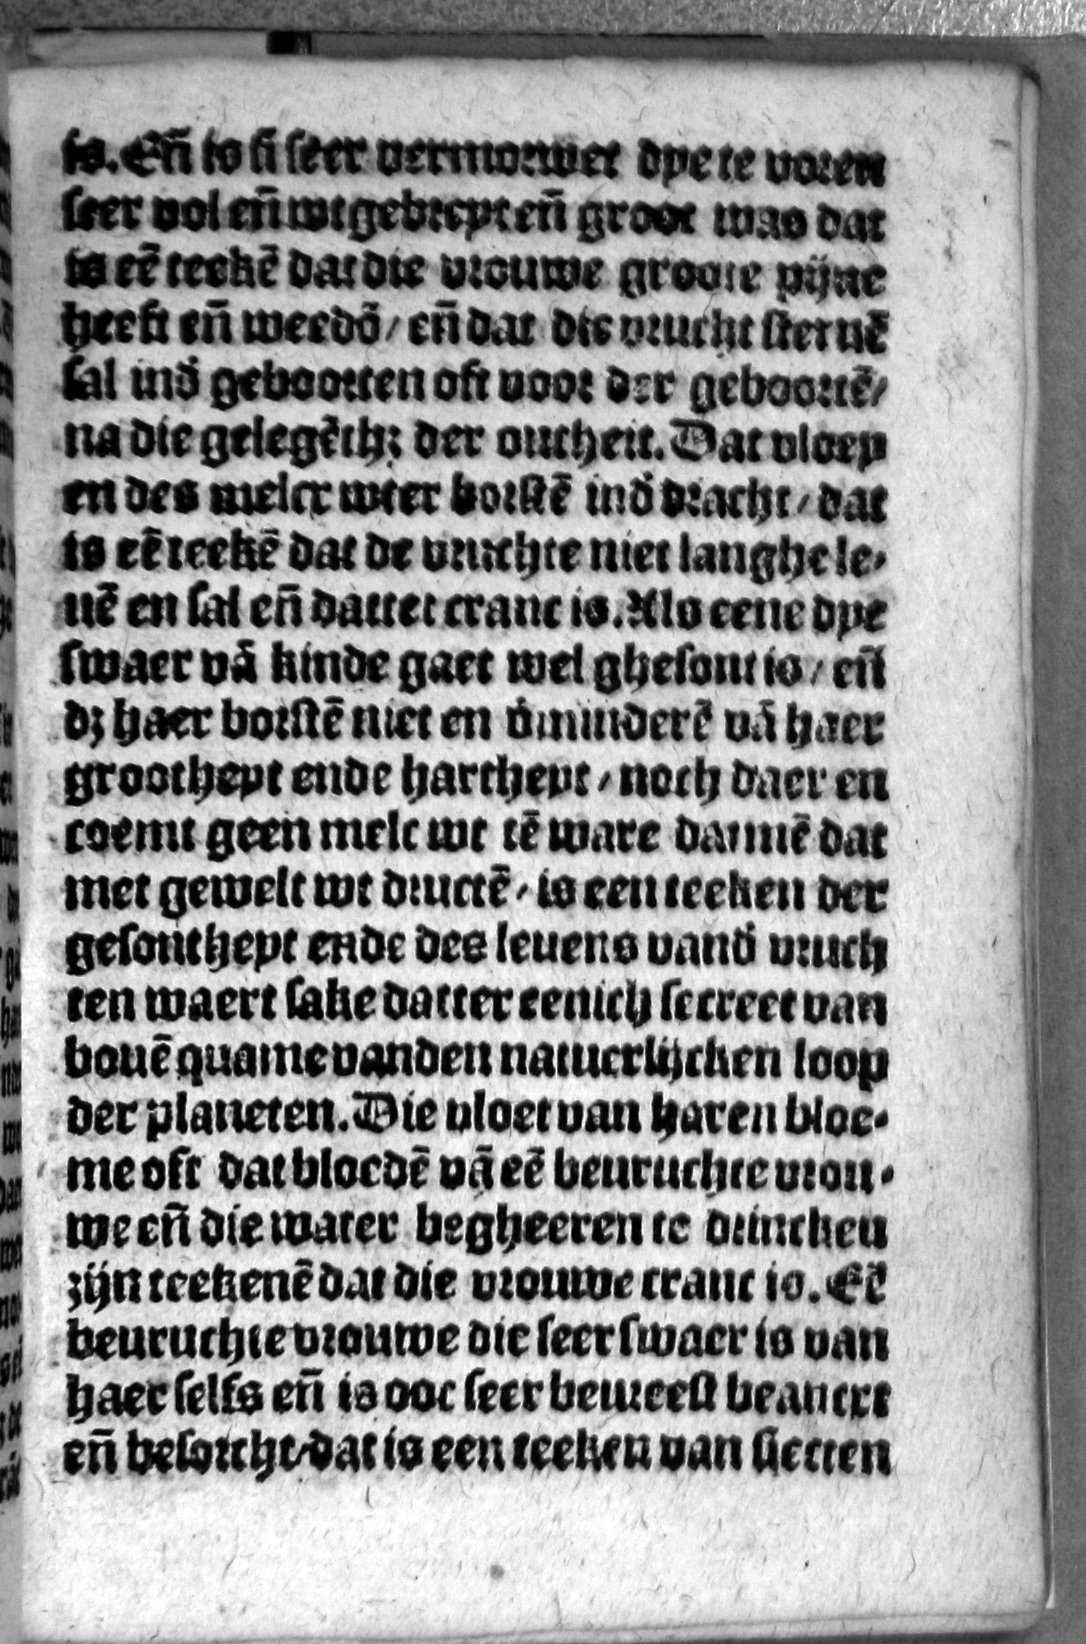 is. Eñ is si seer vermorwet dye te voren
seer vol eñ wtgebreyt eñ groot was dat
is eē teekē dat die vrouwe groote pijne
heeft eñ weedō / eñ dat die vrucht steruē
sal indʼ geboorten oft voor der geboortē /
na die gelegēthꝫ der outheit. Dat vloey
en des melcx wter borstē indʼ dracht / dat
is eē teekē dat de vruchte niet langhe le⸗
uē en sal eñ dattet cranc is. Als eene dye
swaer vā kinde gaet wel ghesont is / eñ
dꝫ haer borstē niet en vʼminderē vā haer
grootheyt ende hartheyt / noch daer en
coemt geen melc wt tē ware datmē dat
met gewelt wt dructē / is een teeken der
gesontheyt ende des leuens vandʼ vruch
ten waert sake datter eenich secreet van
bouē quame vanden natuerlijcken loop
der planeten. Die vloet van haren bloe⸗
me oft dat bloedē vā eē beuruchte vrou⸗
we eñ die water begheeren te drincken
zijn teekenē dat die vrouwe cranc is. Eē
beuruchte vrouwe die seer swaer is van
haer selfs eñ is ooc seer beureest beancxt
eñ besorcht / dat is een teeken van siecten